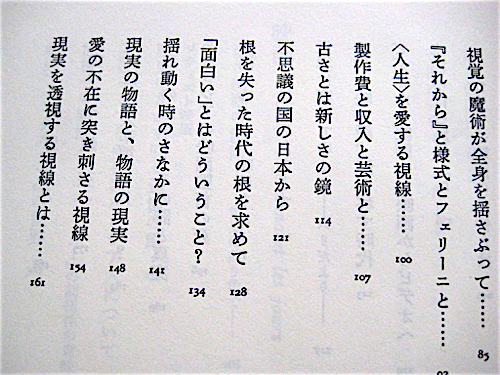 視覚の魔術が全身を揺さぶって…… 85
『それから』と様式とフェリーニと……
〈人生〉を愛する視線…… 100
製作費と収入と芸術と…… 107
古さとは新しさの鏡 114
不思議の国の日本から 121
根を失った時代の根を求めて 128
「面白い」とはどういうこと？ 134
揺れ動く時のさなかに…… 141
現実の物語と、物語の現実 148
愛の不在に突き刺さる視線 154
現実を透視する視線とは…… 161